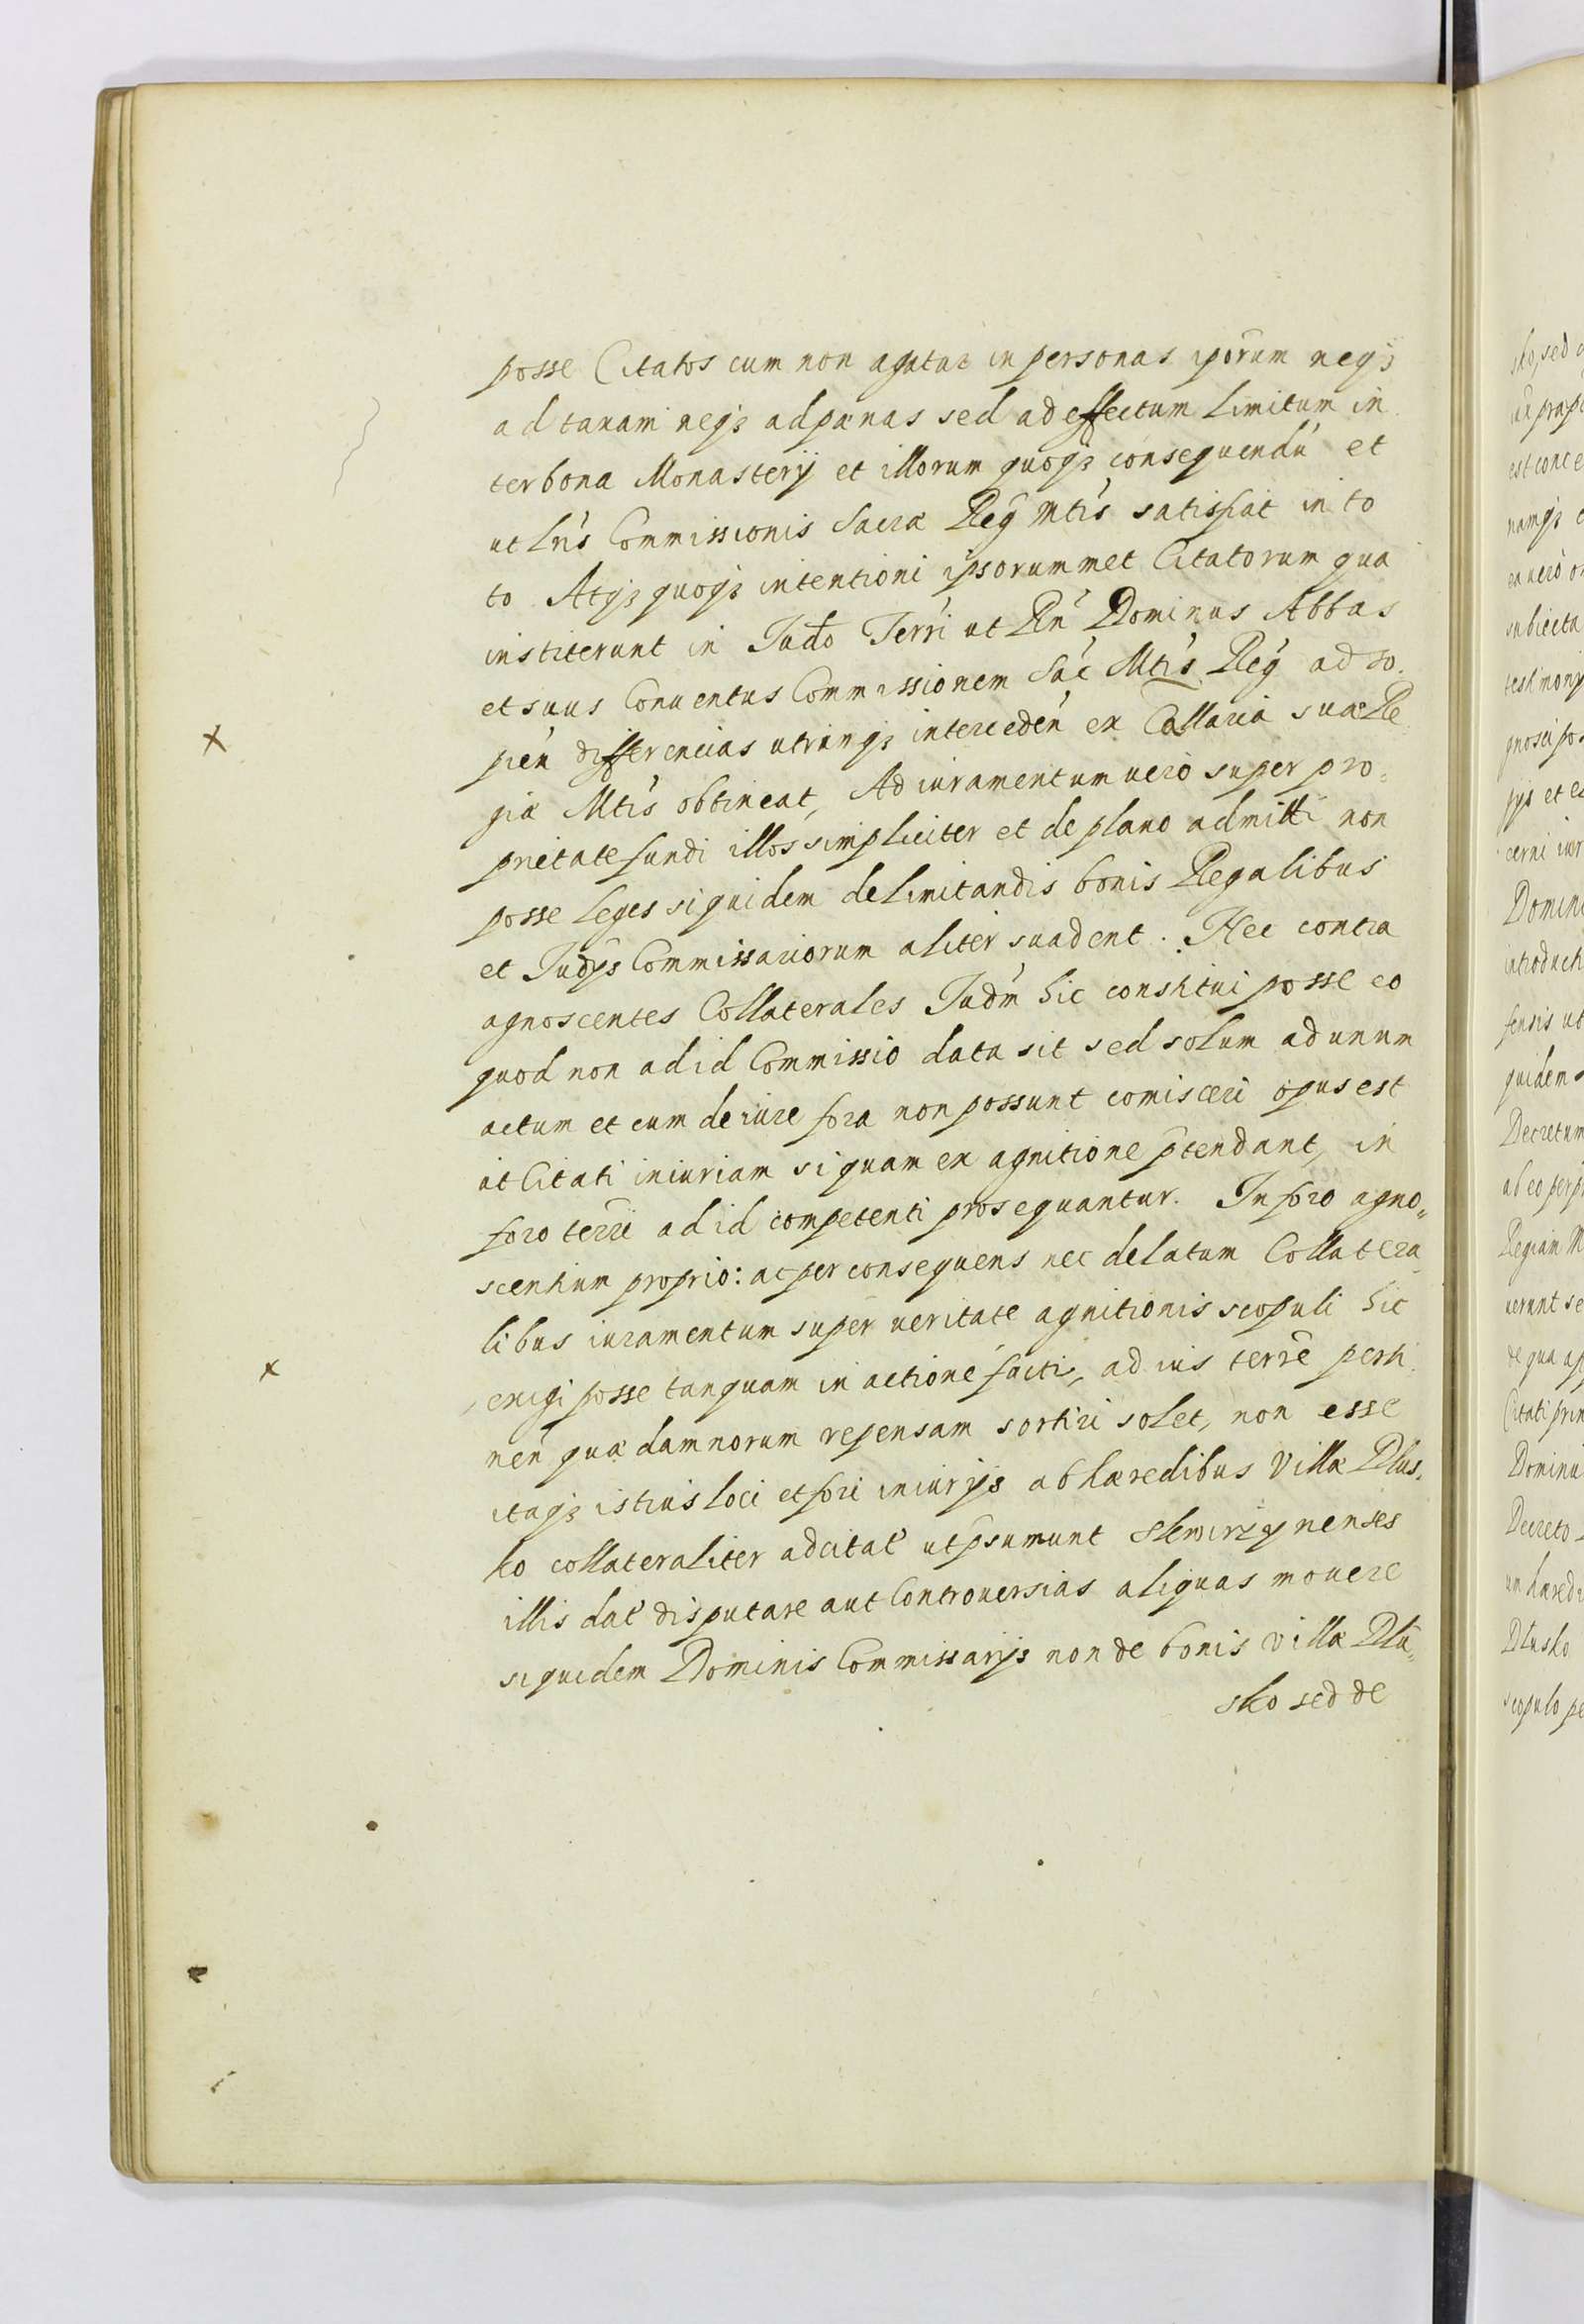 posse Citatos cum non agatur in personas ipõrum neqз
ad taxam neqз ad pænas sed ad effectum limitum in
ter bona Monasterij et illorum quoqз consequendú et
ut Lrís Commissionis Sacræ Reg̃ Mtís satisfiat in to
to Atqз quoqз intentioni ipsorummet Citatorum qua
institerunt in Judõ Terrí ut Rń Dominus Abbas
et suus Conventus Commissionem Sać Mtís Reǵ ad so
pień differencias utrinqз intercedeń ex Callaria suæ Re
giæ Mtís obtineat, Ad iuramentum vero super pro„
prietate fundi illos simpliciter et de plano admitti non
posse leges siquidem de limitandis bonis Regalibus
et Judijs Commissariorum aliter suadent. Nec contra
agnoscentes Collaterales Judḿ hic constitui posse eo
quod non ad id Commissio data sit sed solum ad unum
actum et cum de iure fora non possunt comisceri opus est
ut Citati iniuriam si quam ex agnitione p̃tendant, in
foro terrí ad id competenti prosequantur. In foro agno„
scentium proprio: ac per consequens nec delatum Collatera
libus iuramentum super veritate agnitionis scopuli hic
exigi posse tanquam in actione facti, ad ius terrẽ perti
neń quæ damnorum repensam sortiri solet, non esse
itaqз istius loci et fori iniurijs ab hæredibus Villæ Dlus„
ko collateraliter adcitať ut p̃sumunt Skwirzynenses
illis dať disputare aut Controversias aliquas movere
siquidem Dominis Commissarijs non de bonis villæ Dlu„
sko sed de